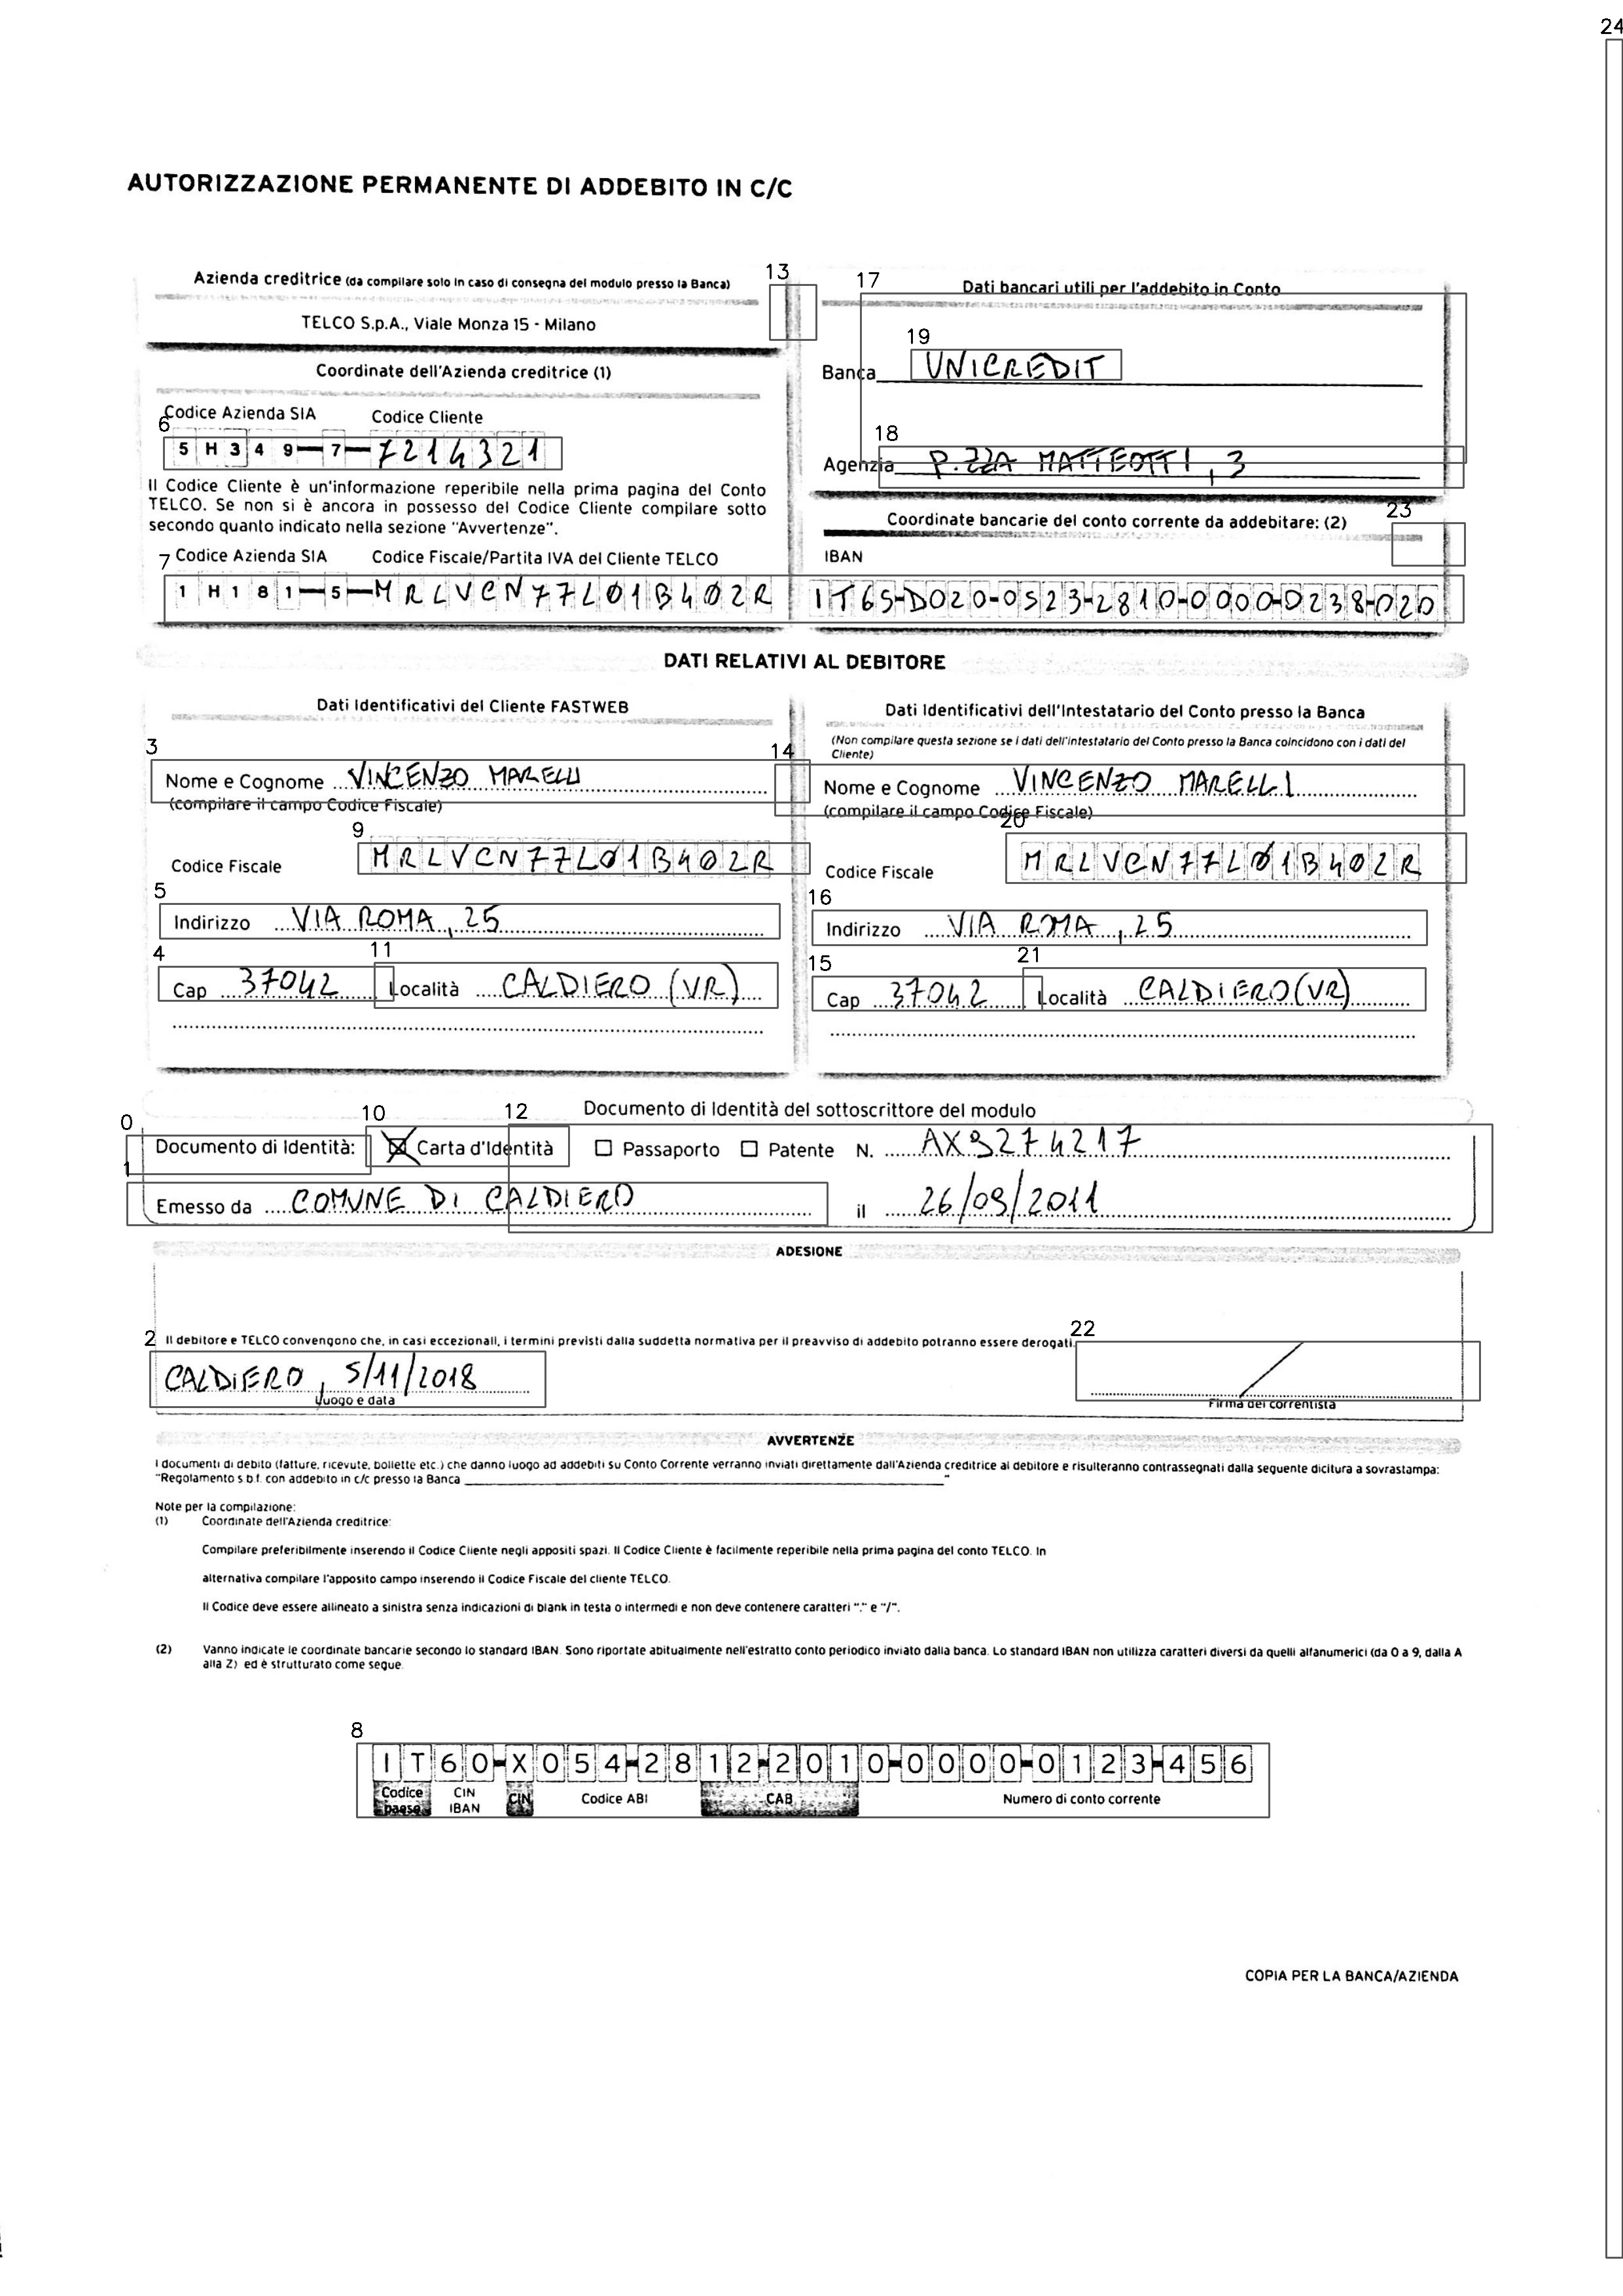 AUTORIZZAZIONE PERMANENTE DI ADDEBITO IN C/C
Azienda creditrice (da compilare solo in caso di consegna del modulo presso la Banca)
TELCO S.p.A., Viale Monza 15 - Milano
Coordinate dell'Azienda creditrice (1)
Codice Azienda SIA Codice Cliente
5 H 3 4 9 - 7 - 7214321
Il Codice Cliente è un'informazione reperibile nella prima pagina del Conto
TELCO. Se non si è ancora in possesso del Codice Cliente compilare sotto
secondo quanto indicato nella sezione "Avvertenze".
Codice Azienda SIA Codice Fiscale/Partita IVA del Cliente TELCO
1 H 1 8 1 - 5 - MRLVCN77L01B402R
Dati bancari utili per l'addebito in Conto
Banca UNICREDIT
Agenzia P.ZZA MATTEOTTI, 3
Coordinate bancarie del conto corrente da addebitare: (2)
IBAN
IT65-D020-0523-2810-0000-0238-020
DATI RELATIVI AL DEBITORE
Dati Identificativi del Cliente FASTWEB
Nome e Cognome VINCENZO MARELLI
(compilare il campo Codice Fiscale)
Codice Fiscale MRLVCN77L01B402R
Indirizzo VIA ROMA, 25
Cap 37042 Località CALDIERO (VR)
Dati Identificativi dell'Intestatario del Conto presso la Banca
(Non compilare questa sezione se i dati dell'intestatario del Conto presso la Banca coincidono con i dati del
Cliente)
Nome e Cognome VINCENZO MARELLI
(compilare il campo Codice Fiscale)
Codice Fiscale MRLVCN77L01B402R
Indirizzo VIA ROMA, 25
Cap 37042 Località CALDIERO (VR)
Documento di Identità del sottoscrittore del modulo
Documento di Identità: Carta d'Identità Passaporto Patente N. AX9274217
Emesso da COMUNE DI CALDIERO il 26/09/2011
ADESIONE
Il debitore e TELCO convengono che, in casi eccezionali, i termini previsti dalla suddetta normativa per il preavviso di addebito potranno essere derogati.
CALDIERO, 5/11/2018
Luogo e data
Firma del correntista
AVVERTENZE
I documenti di debito (fatture, ricevute, bollette etc.) che danno luogo ad addebiti su Conto Corrente verranno inviati direttamente dall'Azienda creditrice al debitore e risulteranno contrassegnati dalla seguente dicitura a sovrastampa:
"Regolamento s.b.f. con addebito in c/c presso la Banca "
Note per la compilazione:
(1) Coordinate dell'Azienda creditrice:
Compilare preferibilmente inserendo il Codice Cliente negli appositi spazi. Il Codice Cliente è facilmente reperibile nella prima pagina del conto TELCO. In
alternativa compilare l'apposito campo inserendo il Codice Fiscale del cliente TELCO.
Il Codice deve essere allineato a sinistra senza indicazioni di blank in testa o intermedi e non deve contenere caratteri "." e "/".
(2) Vanno indicate le coordinate bancarie secondo lo standard IBAN. Sono riportate abitualmente nell'estratto conto periodico inviato dalla banca. Lo standard IBAN non utilizza caratteri diversi da quelli alfanumerici (da 0 a 9, dalla A
alla Z) ed è strutturato come segue.
IT60-X054-2812-2010-0000-0123-456
Codice paese CIN IBAN CIN Codice ABI CAB Numero di conto corrente
COPIA PER LA BANCA/AZIENDA
0
1
2
3
4
5
6
7
8
9
10
11
12
13
14
15
16
17
18
19
20
21
22
23
24